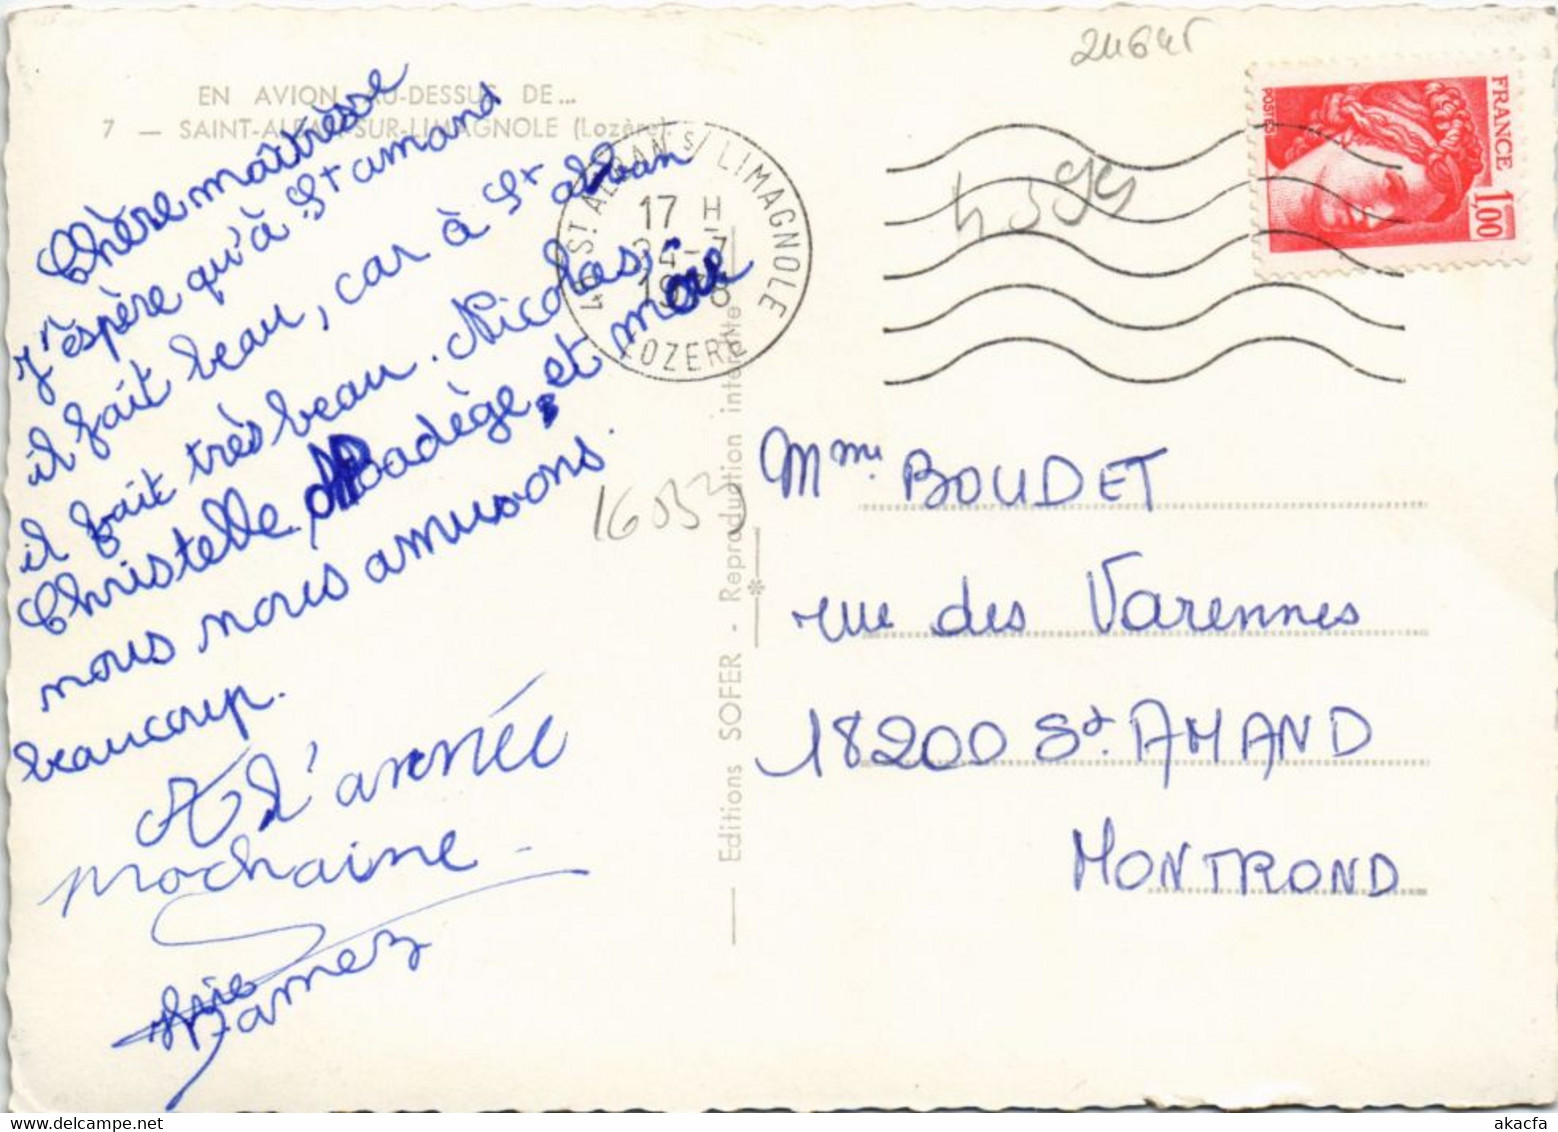 EN AVION AU-DESSUS DE...
7 — SAINT-ALBAN-SUR-LIMAGNOLE (Lozère)
Chère maîtresse
J'espère qu'à St amand
il fait beau, car à St alban
il fait très beau. Nicolas,
Christelle, Nadège, et moi
nous nous amusons
beaucoup.
A l'année
prochaine
48 ST. ALBAN S/ LIMAGNOLE
17 H
24-7
1978
LOZERE
24645
4599
16033
FRANCE
POSTES
1,00
Editions SOFER - Reproduction interdite
Mme BOUDET
rue des Varennes
18200 St. AMAND
MONTROND
akacfa
delcampe.net